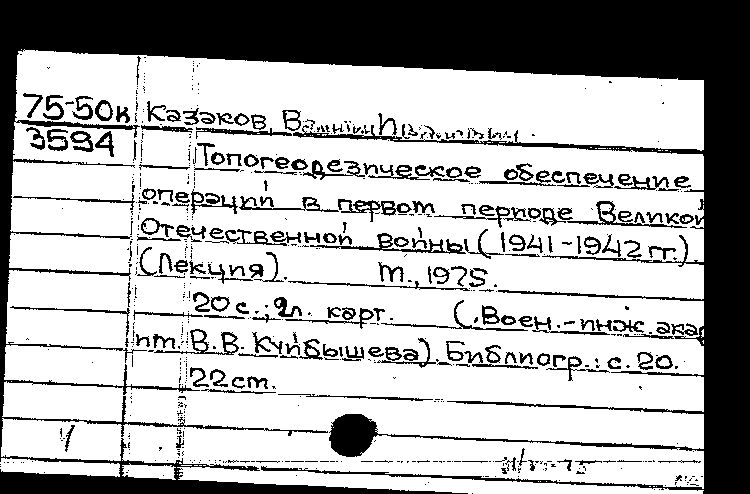 75-50к Казаков,
3594
Топогеодезическое обеспечение
операций в первом периоде Великой
Отечественной войны (1941-1942 гг.).
(Лекция). М., 1975.
20 с.; 2л. карт. (.Воен.-инж. ака
им. В.В. Куйбышева). Библиогр.: с. 20.
22 см.